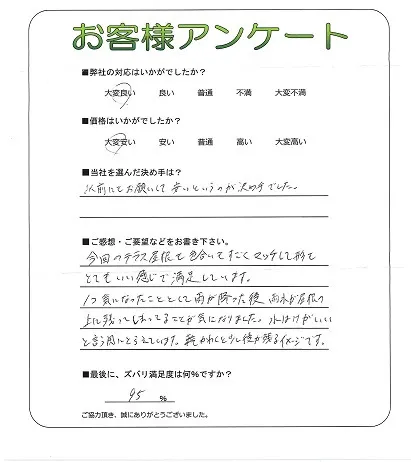 お客様アンケート
■弊社の対応はいかがでしたか?
大変良い 良い 普通 不満 大変不満
■価格はいかがでしたか?
大変安い 安い 普通 高い 大変高い
■当社を選んだ決め手は?
以前にもお願いして安いというのが決め手でした。
■ご感想・ご要望などをお書き下さい。
今回のテラス屋根も色合いてすごくマッチして
とてもいい感じで満足しています。
1つ気になったこととして雨が降った後、雨水が屋根の
上に残ってしまってることが気になりました。水はけがいい
と言う間にとらえています。乾かくと少し後が残るイメージです。
■最後に、ズバリ満足度は何%ですか?
95 %
ご協力頂き、誠にありがとうございました。